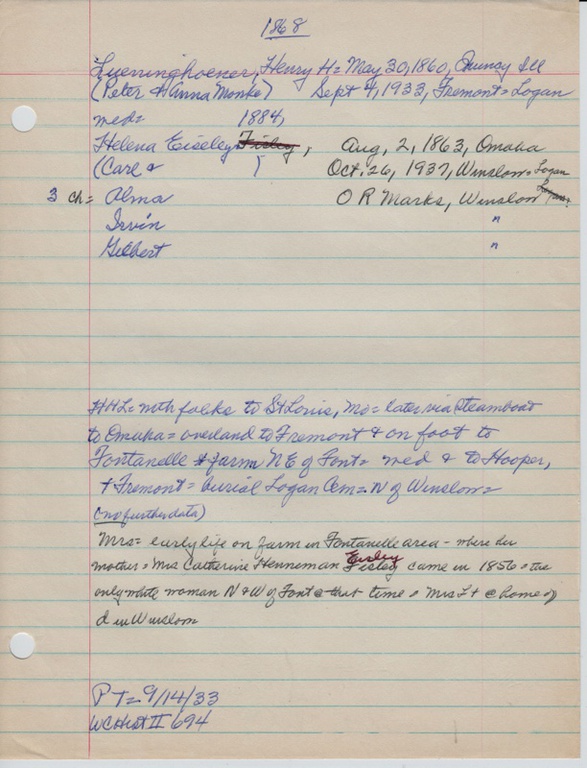 1868
Luenninghoener, Henry H = May 30, 1860, Quincy Ill
(Peter & Anna Monke) Sept 4, 1933, Fremont = Logan
med = 1884,
Helena Eiseley Fisley, Aug, 2, 1863, Omaha
(Carl & ) Oct. 26, 1937, Winslow = Logan
3 ch = Alma O R Marks, Winslow Logan.
Irvin "
Gilbert "
HHL = with folks to St Louis, Mo = later via steamboat
to Omaha = overland to Fremont & on foot to
Fontanelle & farm N E of Font = med & to Hooper,
+ Fremont = burial Logan Cem = N of Winslow =
(no further data)
Mrs = early life on farm in Fontanelle area - where her
mother = Mrs Catherine Henneman Eisley Fisley came in 1856 = the
only white woman N & W of Font @ that time = Mrs L + @ home of
d in Winslow
P T = 9/14/33
WCHist II 694